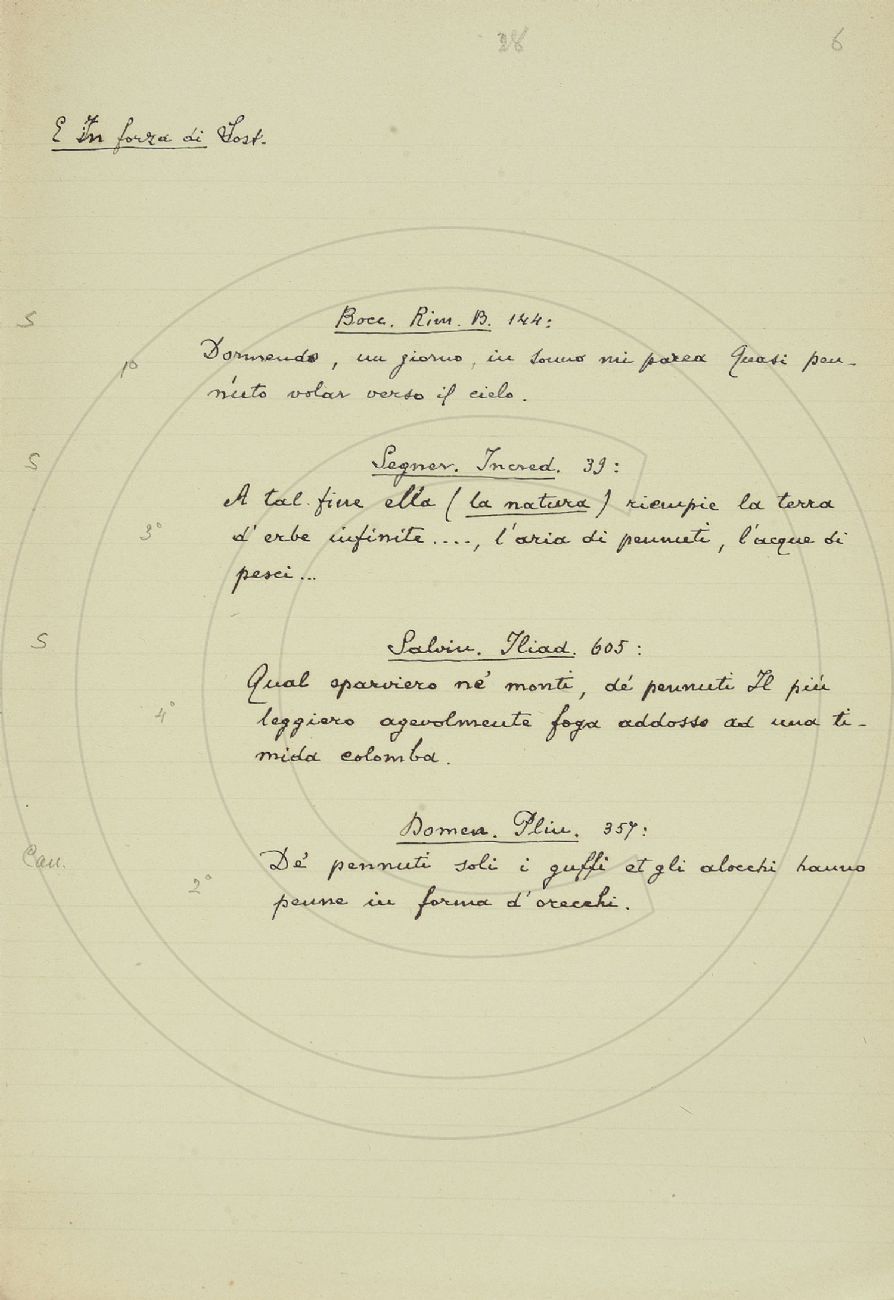 28 6
E In forza di Sost.
S Bocc. Rim. B. 144:
1º Dormendo, un giorno, in sonno mi parea Quasi pen-
nuto volar verso il cielo.
S Segner. Incred. 39:
A tal fine ella (la natura) riempie la terra
3º d'erbe infinite...., l'aria di pennuti, l'acque di
pesci...
S Salvin. Iliad. 605:
Qual sparviero né monti, dé pennuti Il più
4º leggiero agevolmente foga addosso ad una ti-
mida colomba.
Domen. Plin. 357:
Can. Dé pennuti soli i guffi et gli alocchi hanno
2º penne in forma d'orecchi.